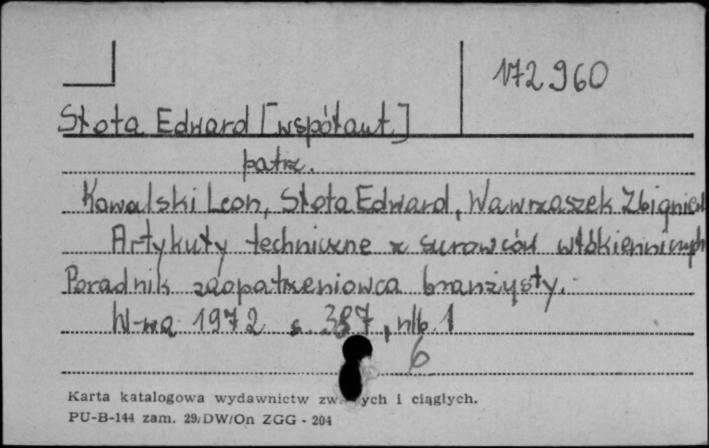 172960
Słota Edward [współaut.]
patrz.
Kowalski Leon, Słota Edward, Wawrzaszek Zbigniew
Artykuły techniczne z surowców włókienniczych
Poradnik zaopatrzeniowca branżysty.
W-wa 1972 s. 387, nlb. 1
6
Karta katalogowa wydawnictw ych i ciągłych.
PU-B-144 zam. 29/DW/On ZGG - 204